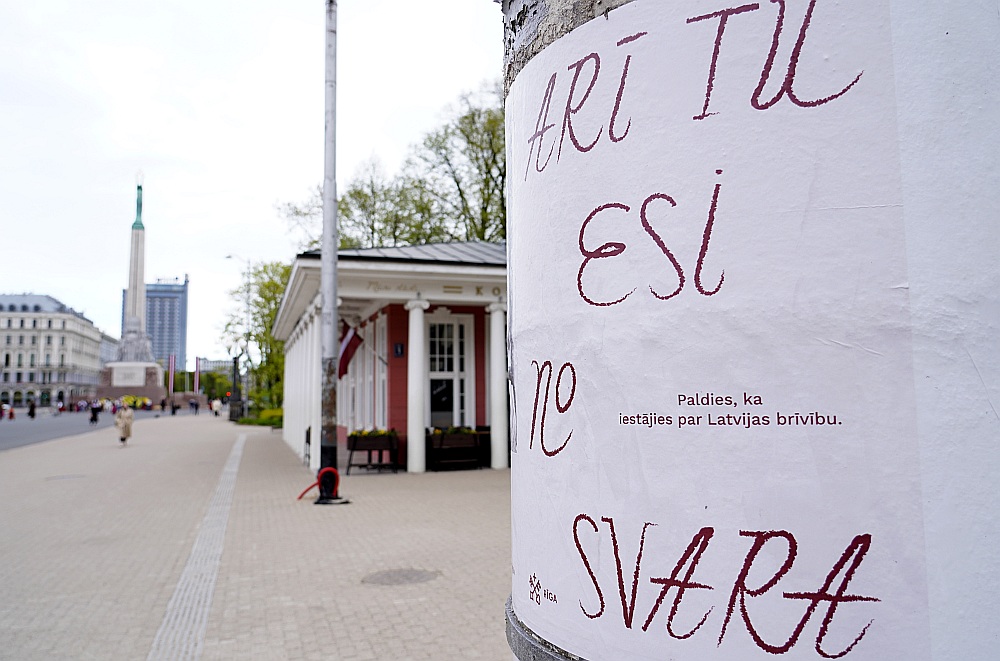 ARĪ TU
ESI
NO
Paldies, ka
iestājies par Latvijas brīvību.
SVARA
RĪGA